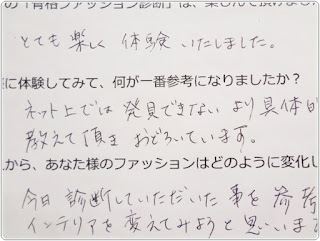 の「骨格ファッション診断」は、楽しんで頂けまし
とても楽しく体験いたしました。
に体験してみて、何が一番参考になりましたか？
ネット上では発見できないより具体的
教えて頂き おどろいています。
から、あなた様のファッションはどのように変化し
今日診断していただいた事を参考
インテリアを変えてみようと思いま